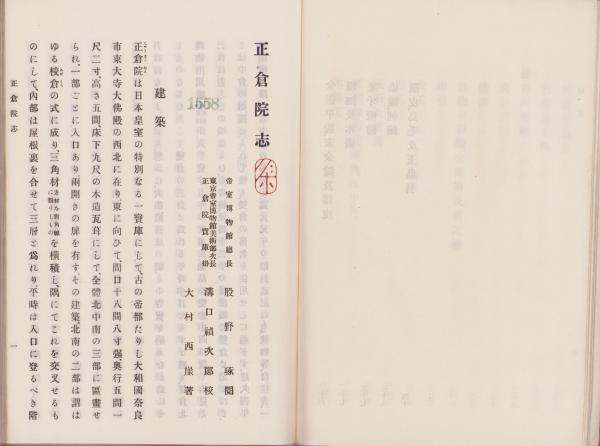 正倉院志
1558
帝室博物館廳長 股野琢閱
東京帝室博物館美術部次長
正倉院寶庫掛 溝口禎次郎校
大村西崖著
建築
正倉院は日本皇室の特別なる一寶庫にして、古の帝都たりし大和國奈良
市東大寺大佛殿の西北に在り、東に向ひて、間口十八間八寸強、奧行五間一
尺二寸、高さ五間、床下九尺の木造瓦葺にして、全體北中南の三部に區畫せ
られ、一部ごとに入口あり、兩開きの扉を有す、その建築、北南の二部は謂は
ゆる校倉の式に成り、三角材を橫積し、隅にてこれを交叉せるも
のにして、內部は屋根裏を合せて三層と爲れり、平時は入口に登るべき階
正倉院志
一